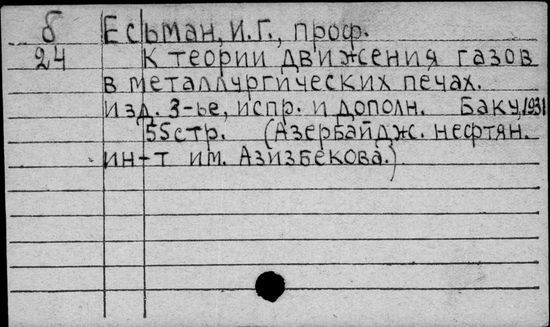 б Есьман, И.Г., проф.
24 К теории движения газов
в металлургических печах.
изд. 3-ье, испр. и дополн. Баку, 1931
55стр. (Азербайдж. нефтян.
ин-т им. Азизбекова.)